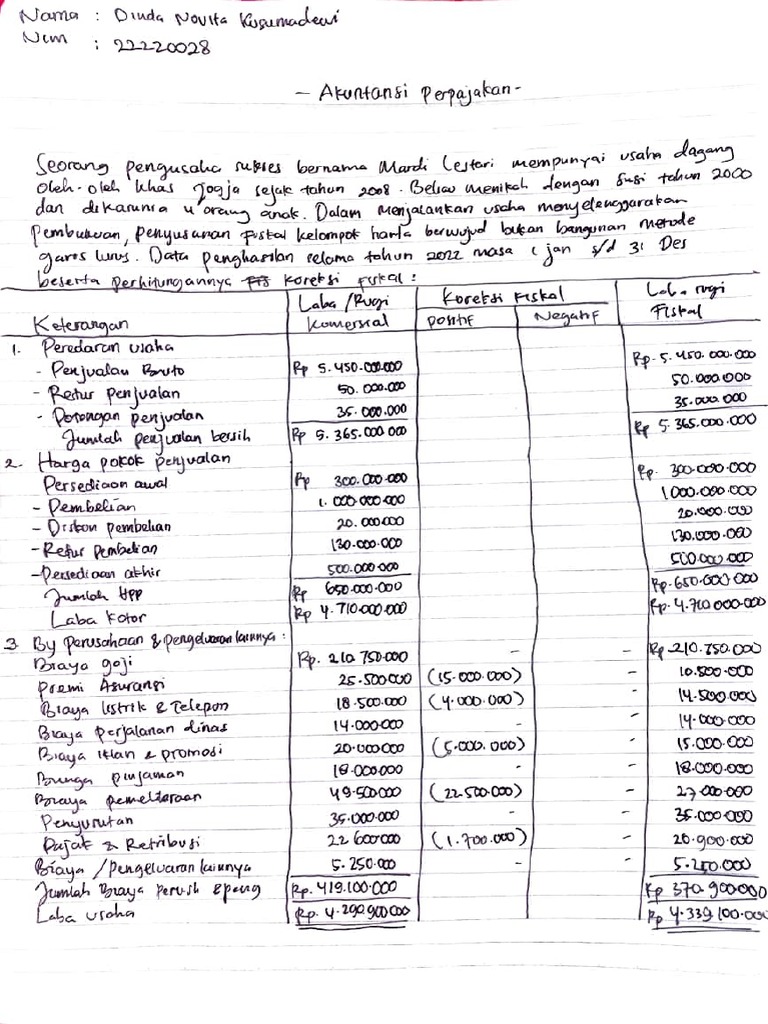 Nama : Dinda Novita Kusumadewi
Nim : 22220028
- Akuntansi Perpajakan -
Seorang pengusaha sukses bernama Mardi Lestari mempunyai usaha dagang
oleh-oleh khas Jogja sejak tahun 2008. Beliau menikah dengan Susi tahun 2000
dan dikarunia 4 orang anak. Dalam menjalankan usaha menyelenggarakan
Pembukuan, penyusunan fiskal kelompok harta berwujud bukan bangunan metode
garis lurus. Data penghasilan selama tahun 2022 masa 1 jan s/d 31 Des
beserta perhitungannya koreksi fiskal :
Keterangan Laba/Rugi Komersial Koreksi Fiskal Positif Negatif Laba rugi Fiskal
1. Peredaran usaha
- Penjualan Bruto Rp 5.450.000.000 Rp. 5.450.000.000
- Retur penjualan 50.000.000 50.000.000
- Potongan penjualan 35.000.000 35.000.000
Jumlah penjualan bersih Rp 5.365.000.000 Rp 5.365.000.000
2. Harga pokok penjualan
Persediaan awal Rp 300.000.000 Rp. 300.000.000
- Pembelian 1.000.000.000 1000.000.000
- Diskon pembelian 20.000.000 20.000.000
- Retur Pembelian 130.000.000 130.000.000
- Persediaan akhir 500.000.000 500.000.000
Jumlah HPP Rp 650.000.000 Rp. 650.000.000
Laba kotor Rp 4.710.000.000 Rp. 4.710.000.000
3 By Perusahaan & pengeluaran lainnya :
Biaya gaji Rp. 210.750.000 - - Rp 210.750.000
Premi Asuransi 25.500.000 (15.000.000) - 10.500.000
Biaya listrik & Telepon 18.500.000 (4.000.000) - 14.500.000
Biaya perjalanan dinas 14.000.000 - - 14.000.000
Biaya iklan & promosi 20.000.000 (5.000.000) - 15.000.000
Bunga pinjaman 18.000.000 - - 18.000.000
Biaya pemeliharaan 49.500.000 (22.500.000) - 27.000.000
Penyusutan 35.000.000 - - 35.000.000
Pajak & Retribusi 22.600.000 (1.700.000) - 20.900.000
Biaya / Pengeluaran lainnya 5.250.000 - - 5.250.000
Jumlah Biaya Perush & peng Rp. 419.100.000 Rp 370.900.000
Laba usaha Rp. 4.290.900.000 Rp 4.339.100.000